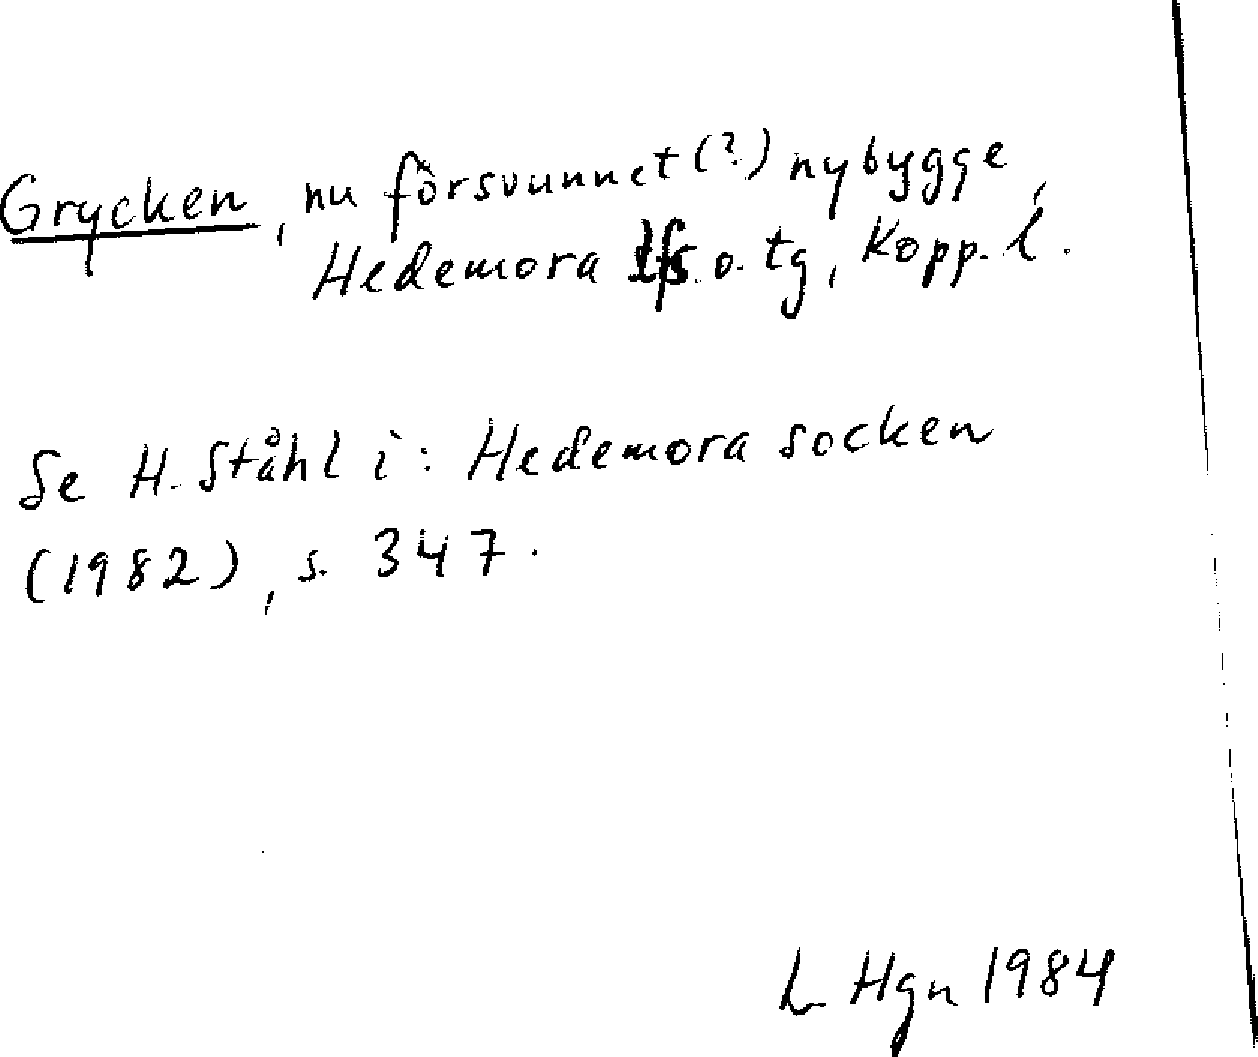 Grycken, nu försvunnet (?) nybygge,
Hedemora lfs. o. tg, Kopp. l.
Se H. Ståhl i: Hedemora socken
(1982), s. 347.
L Hgn 1984